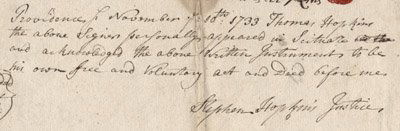 Providence ss November ye 10th 1733 Thomas Hopkins
the above Signer personally appeared in Scituate
and acknowledged the above Written Instrument to be
his own free and Voluntary act and Deed before me
Stephen Hopkins Justice